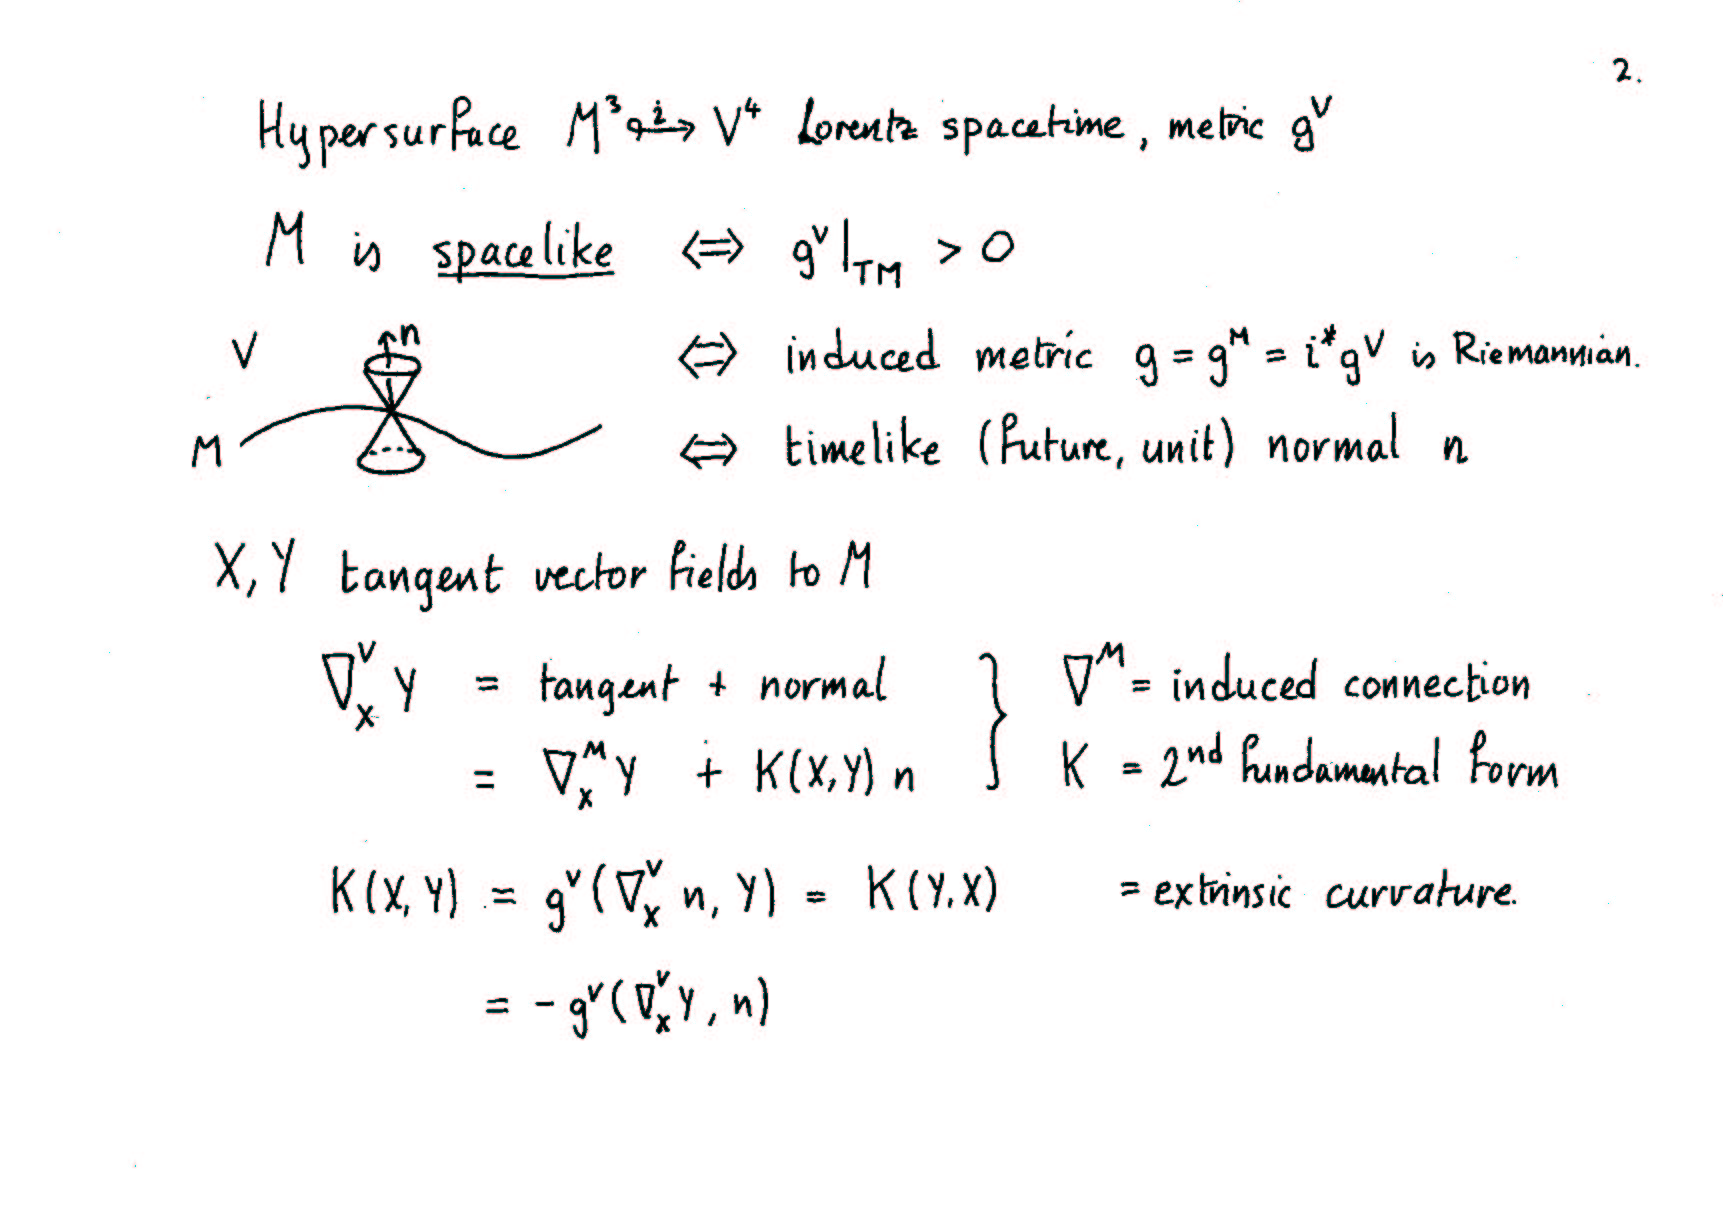 2.
Hypersurface M³ ↪ⁱ V⁴ Lorentz spacetime, metric gⱽ
M is spacelike ⇔ gⱽ|_TM > 0
V n
⇔ induced metric g = gᴹ = i*gⱽ is Riemannian.
M
⇔ timelike (future, unit) normal n
X, Y tangent vector fields to M
∇ⱽ_X Y = tangent + normal } ∇ᴹ = induced connection
= ∇ᴹ_X Y + K(X,Y) n K = 2nd fundamental form
K(X, Y) = gⱽ(∇ⱽ_X n, Y) = K(Y,X) = extrinsic curvature.
= -gⱽ(∇ⱽ_X Y, n)